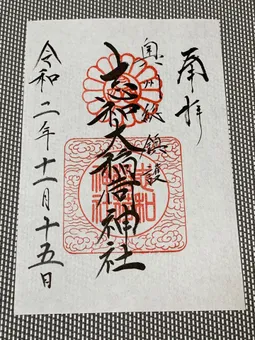 奉拝
奥州総鎮護
志和大稲荷神社
令和二年十一月十五日